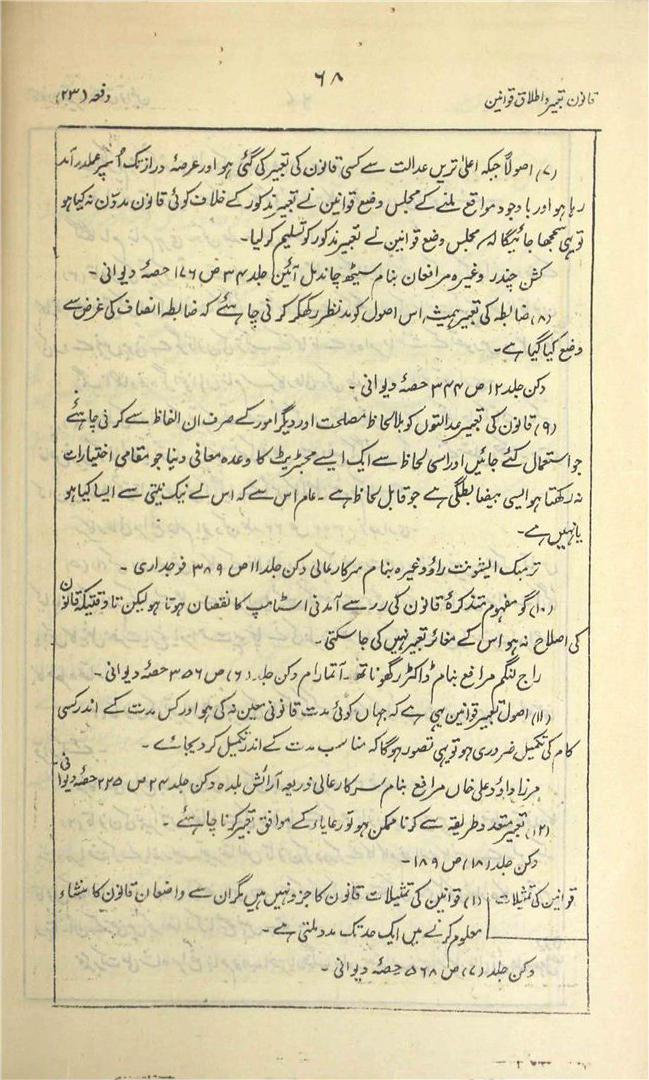 ۶۸
قانون تعبیر و اطلاق قوانین
دفعہ (۲۳)
(۷) اصولاً جبکہ اعلیٰ ترین عدالت سے کسی قانون کی تعبیر کی گئی ہو اور عرصۂ دراز تک اُسپر عملدرآمد
رہا ہو اور باوجود مواقع ملنے کے مجلس وضع قوانین نے تعبیر مذکور کے خلاف کوئی قانون مدوّن نہ کیا ہو
تو یہی سمجھا جائیگا کہ مجلس وضع قوانین نے تعبیر مذکور کو تسلیم کر لیا۔
کشن چندر وغیرہ مرافعان بنام سیٹھ چاندمل آئین جلد ۳۴ ص ۱۷۶ حصۂ دیوانی۔
(۸) ضابطہ کی تعبیر ہمیشہ اس اصول کو مدنظر رکھکر کرنی چاہئے کہ ضابطہ انصاف کی غرض سے
وضع کیا گیا ہے۔
دکن جلد ۱۲ ص ۳۴۴ حصۂ دیوانی۔
(۹) قانون کی تعبیر عدالتوں کو بلا لحاظ مصلحت اور دیگر امور کے صرف ان الفاظ سے کرنی چاہئے
جو استعمال کئے جائیں اور اسی لحاظ سے ایک ایسے مجسٹریٹ کا وعدہ معافی دینا جو مقامی اختیارات
نہ رکھتا ہو ایسی بیضابطگی ہے جو قابل لحاظ ہے۔ عام اس سے کہ اس نے نیک نیتی سے ایسا کیا ہو
یا نہیں ہے۔
ترمبک ایشونت راؤ وغیرہ بنام سرکارعالی دکن جلد ۱۱ ص ۳۸۹ فوجداری۔
(۱۰) گو مفہوم متذکرۂ قانون کی رو سے آمدنی اسٹامپ کا نقصان ہوتا ہو لیکن تا وقتیکہ قانون
کی اصلاح نہ ہو اس کے مغائر تعبیر نہیں کی جاسکتی۔
راج لنگم مرافع بنام ڈاکٹر رگھوناتھ۔ آتمارام دکن جلد (۶) ص ۳۵۶ حصۂ دیوانی۔
(۱۱) اصول تعبیر قوانین یہی ہے کہ جہاں کوئی مدت قانونی معین نہ کی ہو اور کس مدت کے اندر کسی
کام کی تکمیل ضروری ہو تو یہی تصور ہوگا کہ مناسب مدت کے اندر تکمیل کر دیجائے۔
مرزا داؤد علی خاں مرافع بنام سرکارعالی ذریعہ آرائش بلدہ دکن جلد ۲۴ ص ۲۲۵ حصۂ دیوانی۔
(۱۲) تعبیر متعدد طریقہ سے کرنا ممکن ہو تو رعایا کے موافق تعبیر کرنا چاہئے۔
دکن جلد (۱۸) ص ۱۸۹۔
قوانین کی تمثیلات
(۱) قوانین کی تمثیلات قانون کا جزو نہیں ہیں مگر ان سے واضعان قانون کا منشاء
معلوم کرنے میں ایک حد تک مدد ملتی ہے۔
دکن جلد (۷) ص ۵۶۸ حصۂ دیوانی۔